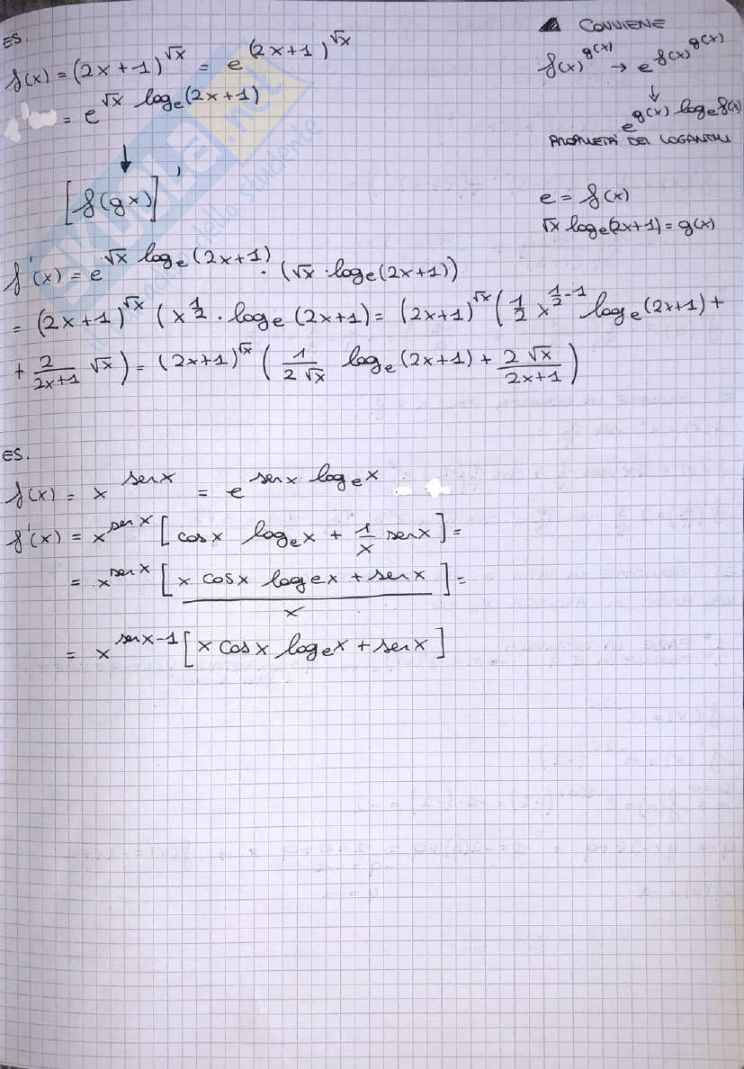 ES.
f(x) = (2x+1)^√x = e^(2x+1)^√x
= e^√x log_e(2x+1)
[f(gx)]'
▲ CONVIENE
f(x)^g(x) → e^f(x)^g(x)
↓
e^g(x) log_e f(x)
PROPRIETA' DEI LOGARITMI
e = f(x)
√x log_e(2x+1) = g(x)
f'(x) = e^√x log_e(2x+1) · (√x · log_e(2x+1))
= (2x+1)^√x (x^1/2 · log_e (2x+1) = (2x+1)^√x (1/2 x^1/2-1 log_e (2x+1) +
+ 2/2x+1 √x) = (2x+1)^√x (1/2√x log_e (2x+1) + 2√x/2x+1)
ES.
f(x) = x^senx = e^senx log_e x
f'(x) = x^senx [cosx log_e x + 1/x senx] =
= x^senx [x cosx log_e x + senx / x] =
= x^senx-1 [x cosx log_e x + senx]
SKUOLA.net
dello studente